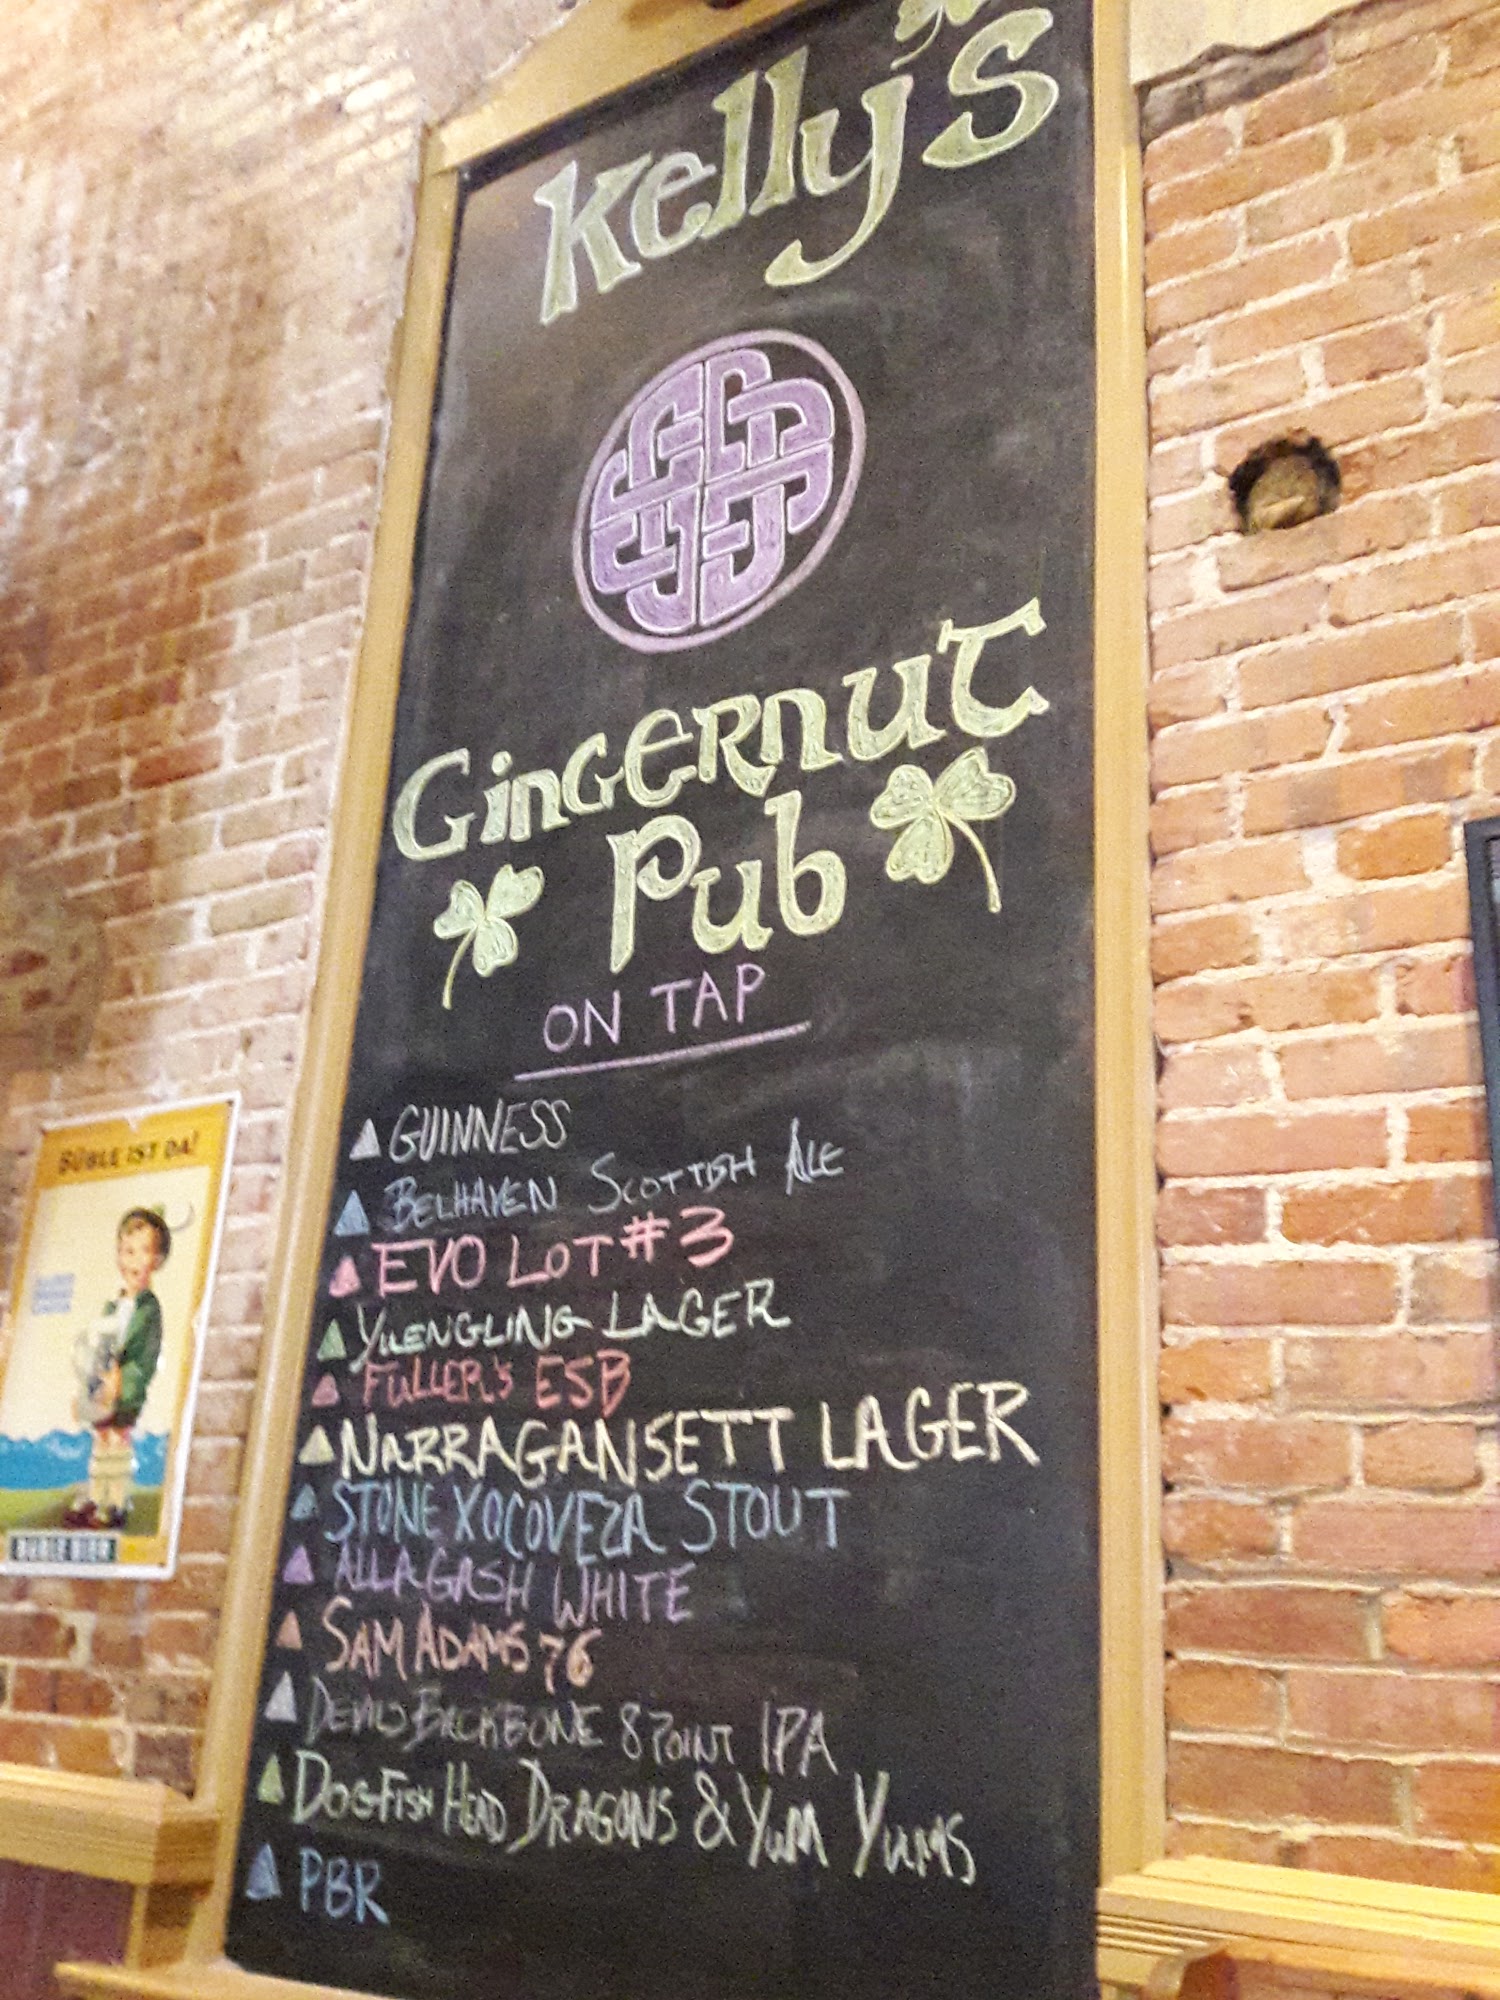 Kelly's
GingerNut
Pub
ON TAP
GUINNESS
BELHAVEN SCOTTISH ALE
EVO LOT #3
YUENGLING LAGER
FULLER'S ESB
NARRAGANSETT LAGER
STONE XOCOVEZA STOUT
ALLAGASH WHITE
SAM ADAMS 76
DEVILS BACKBONE 8 POINT IPA
DOGFISH HEAD DRAGONS & YUM YUMS
PBR
BÜBLE IST DA!